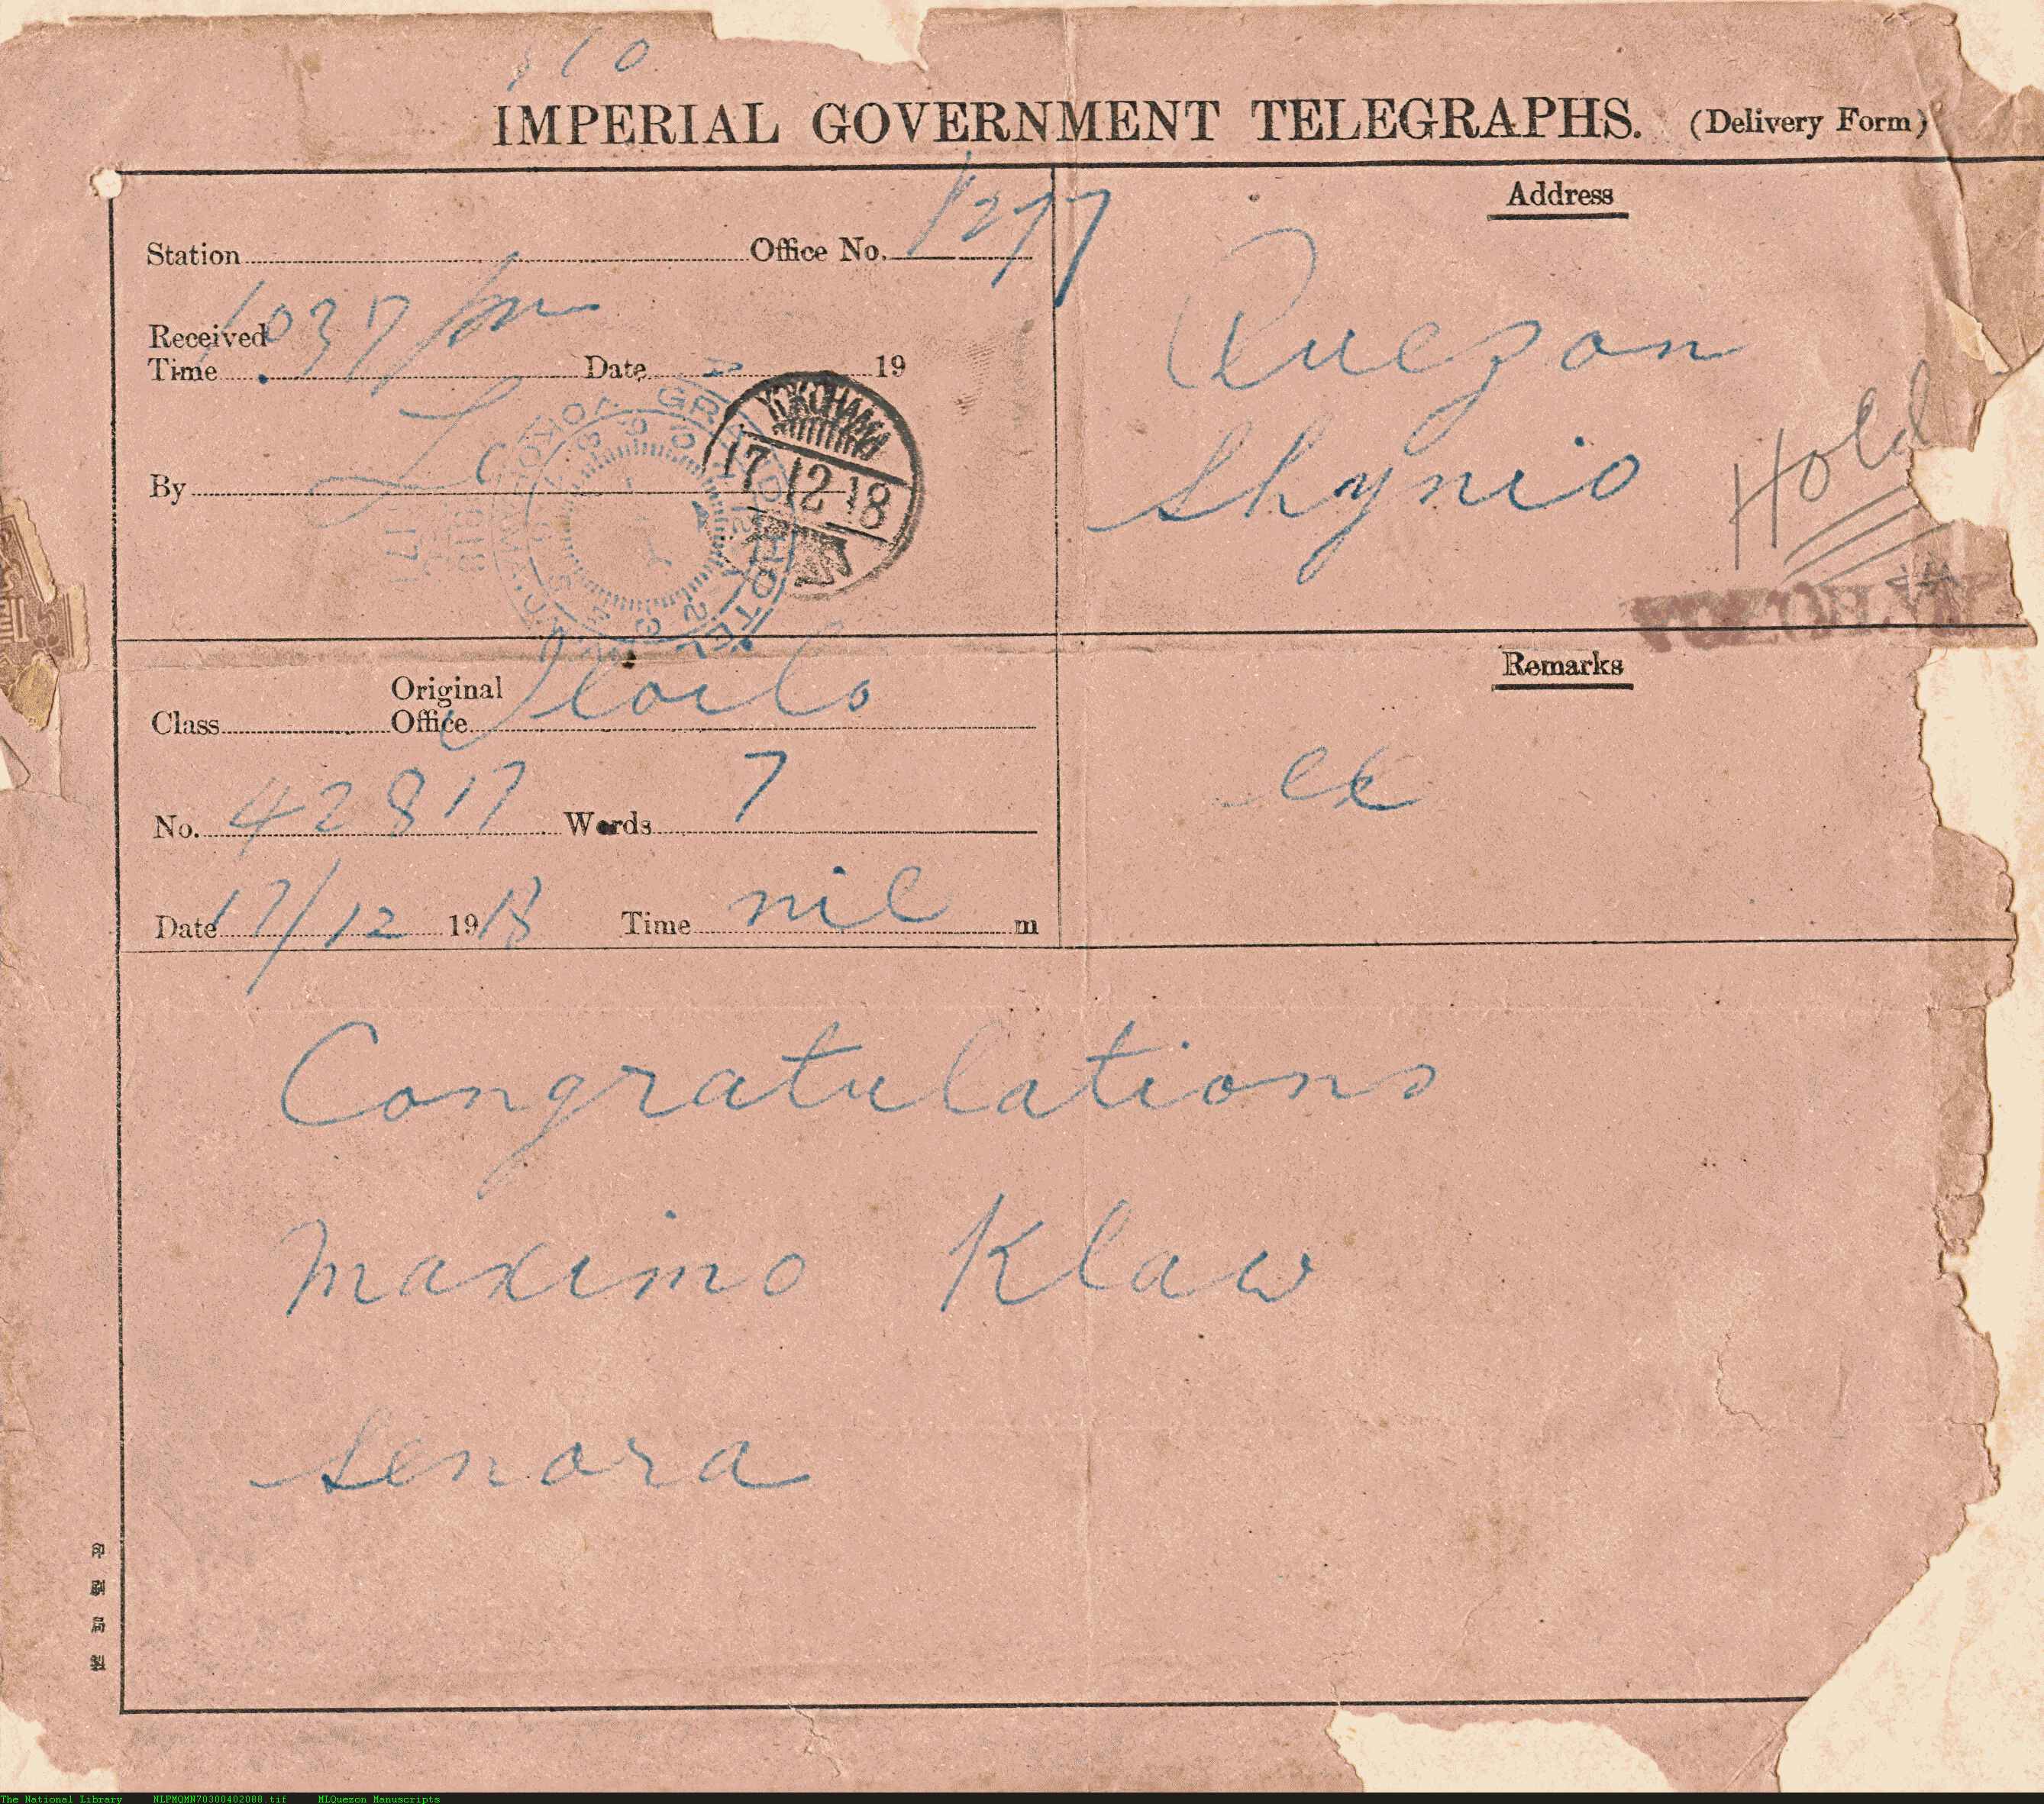 IMPERIAL GOVERNMENT TELEGRAPHS. (Delivery Form)
Station Office No. 1277
Received
Time 1037 pm Date 19
By
YOKOHAMA
17.12.18
GRAND HOTEL
Address
Quezon
Shynio
Hold
Class Original
Office Iloilo
No. 42817 Words 7
Date 17/12 1918 Time nil m
Remarks
Congratulations
Maximo Klaw
Senora
印刷局製
The National Library NLPMQMN70300402088.tif MLQuezon Manuscripts